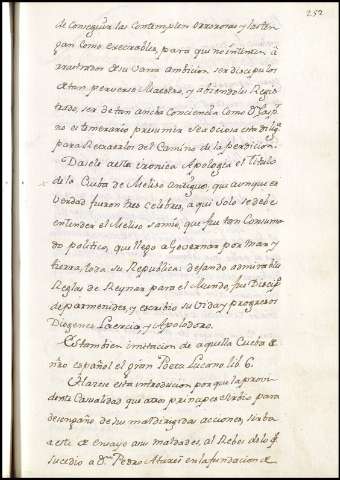 252
de conseguir las contemplen orrorosas y las ten
gan como execrables, para que no intenten
arrastrados de su vana ambicion ser discipulos
de tan perverso Maestro, y abiendolos Regis
trado, ser de tan ancha conciencia como Dn
no es temerario presumir sea ociosa esta dilig.a
para Retraerlos del Camino de la perdicion.
Dasele a esta ironica Apologia el titulo
de la Cueba de Meliso antiguo, que aunque es
verdad fueron tres celebres, aqui solo se debe
entender el Meliso samio, que fue tan Consuma
do politico, que llego a Governar por Mar y
tierra, toda su Republica: dejando admirables
Reglas de Reynar para el Mundo fue Discip.o
de parmenides, y escribio su Vida y progresos
Diogenes Laercia, y Apolodoro.
Es tambien imitacion de aquella Cueba de
nro español el gran Poeta Lucano lib 6.
Hazese esta introducion por que la provi
dente Casualidad que a otro principe serbio para
desengaño de sus mal dirigidas acciones, sirba
a este de ensayo a sus maldades, al Rebes de lo q.
sucedio a Dn Pedro Atares en la fundacion de